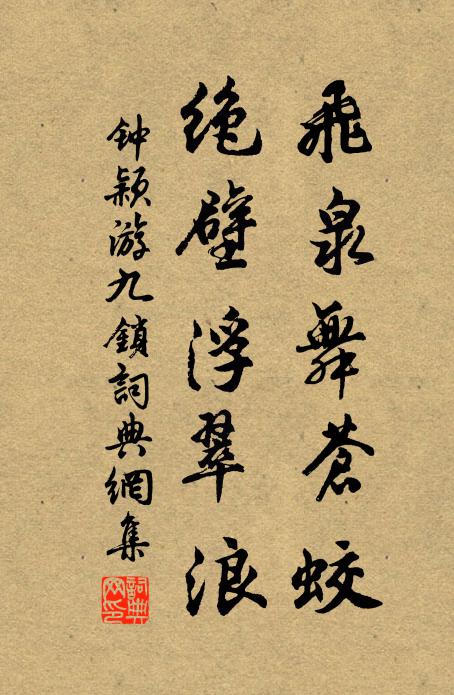 飛泉舞蒼蛟
绝壁浮翠浪
钟颖游九鎖詞典網集
詞典网印